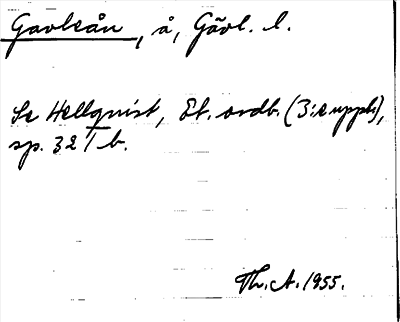 Gavleån, å, Gävl. l.
Se Hellquist, Et. ordb. (3:e uppl.),
sp. 321 b.
Th. A. 1955.